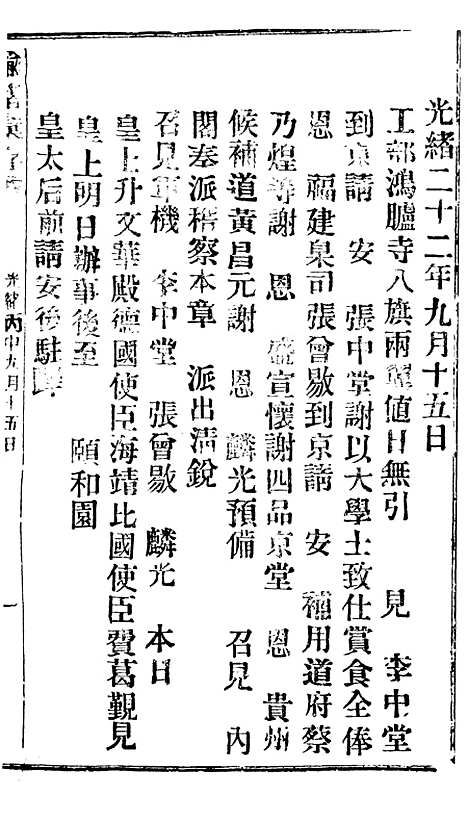 光緒二十二年九月十五日
工部鴻臚寺八旗兩翼値日無引　見　李中堂
到京請　安　張中堂謝以大學士致仕賞食全俸
恩　福建臬司張曾敭到京請　安　補用道府蔡
乃煌等謝　恩　盛宣懷謝四品京堂　恩　貴州
候補道黃昌元謝　恩　麟光預備　召見　內
閣奉派稽察本章　派出淸銳
召見軍機　李中堂　張曾敭　麟光　本日
皇上升文華殿德國使臣海靖比國使臣費葛覲見
皇上明日辦事後至　頤和園
皇太后前請安後駐蹕
光緒丙申九月十五日
一